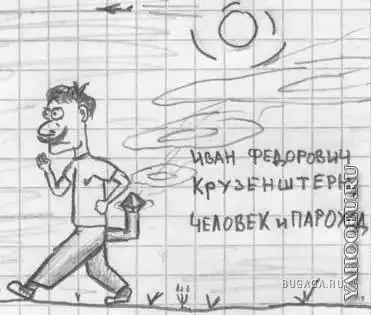 ИВАН ФЕДОРОВИЧ
КРУЗЕНШТЕРН
ЧЕЛОВЕК и ПАРОХОД
BUGAGA.RU
YAHOOEU.RU